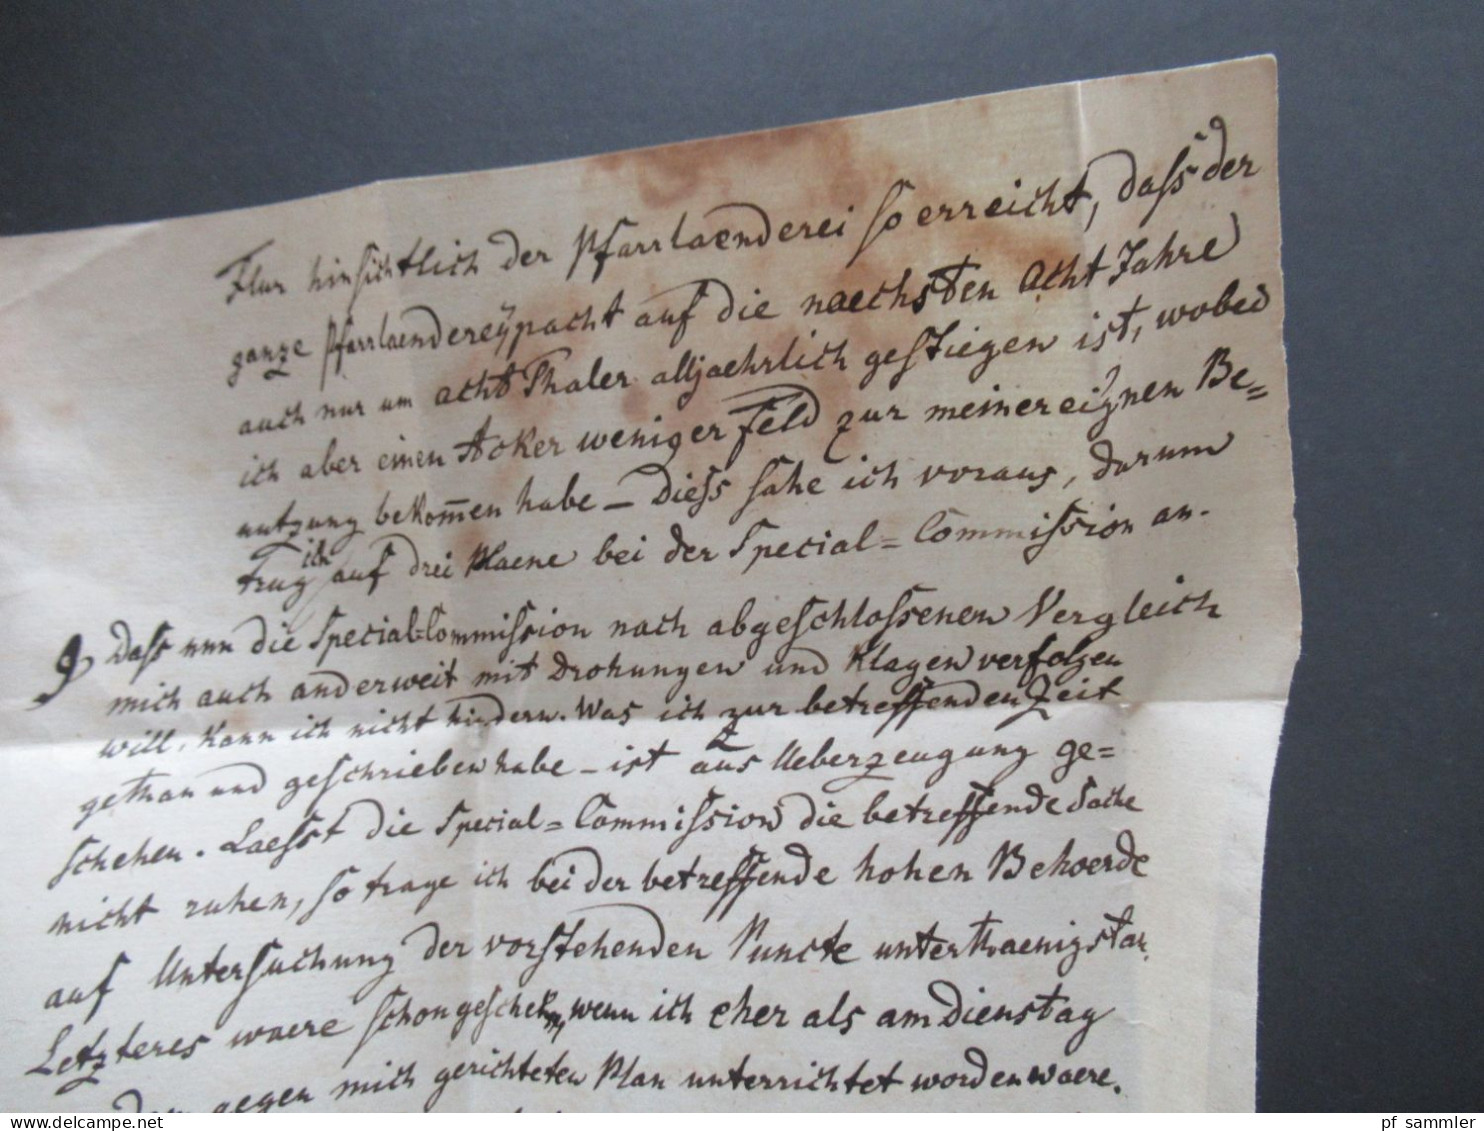 Flur hinsichtlich der Pfarrlaenderei so erreicht, dass der
ganze Pfarrlaendereÿpacht auf die naechsten Acht Jahre
auch nur um acht Thaler alljaehrlich gestiegen ist, wobei
ich aber einen Acker weniger Feld zur meiner eignen Be=
nutzung bekom̅en habe – Diess sahe ich voraus, darum
trug ich auf drei Plaene bei der Special=Commission an.
Dass nun die Special-Commission nach abgeschlossenen Vergleich
mich auch anderweit mit Drohungen und Klagen verfolgen
will, kann ich nicht hindern. Was ich zur betreffenden Zeit
gethan und geschrieben habe – ist aus Ueberzeugung ge=
schehen. Laesst die Special=Commission die betreffende Sache
nicht ruhen, so trage ich bei der betreffende hohen Behoerde
auf Untersuchung der vorstehenden Puncte unterthaenigst an.
Letzteres waere schon geschehn, wenn ich eher als am Dienstag
dem gegen mich gerichteten Plan unterrichtet worden waere.
pf_sammler delcampe.net